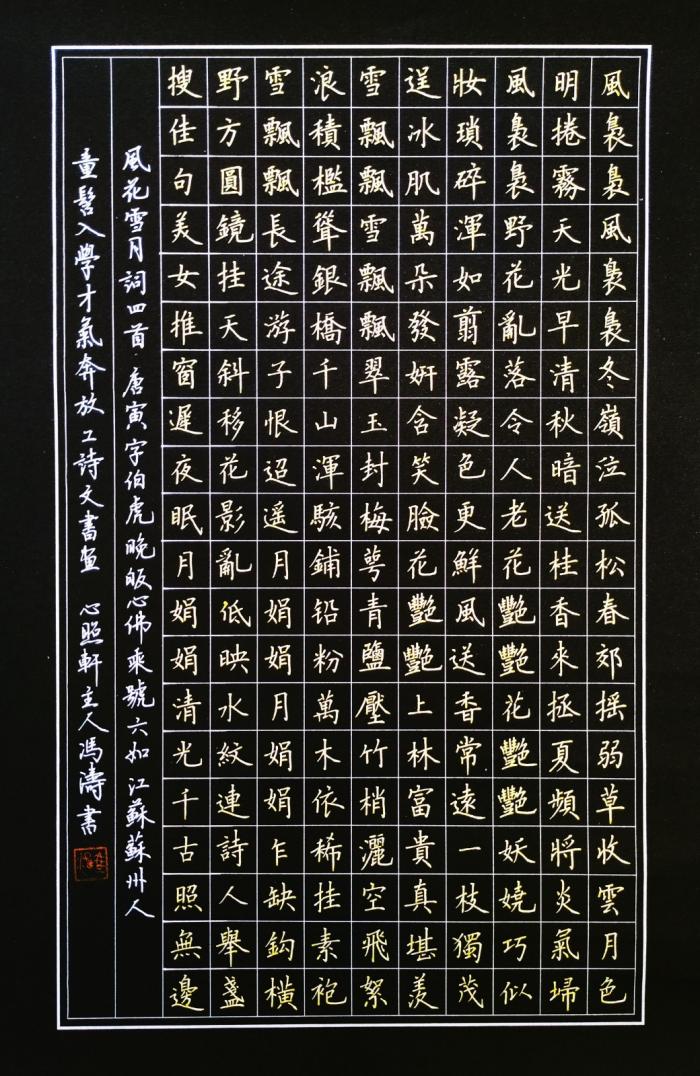 風裊裊風裊裊冬嶺泣孤松春郊摇弱草收雲月色
明捲霧天光早清秋暗送桂香來拯夏頻將炎氣埽
風裊裊野花亂落令人老花艷艷花艷艷妖嬈巧似
妝瑣碎渾如翦露凝色更鮮風送香常遠一枝獨茂
逞冰肌萬朵發妍含笑臉花艷艷上林富貴真堪羡
雪飄飄雪飄飄翠玉封梅萼青鹽壓竹梢灑空飛絮
浪積檻聳銀橋千山渾駭鋪铅粉萬木依稀挂素袍
雪飄飄長途游子恨迢遥月娟娟月娟娟乍缺鈎橫
野方圓鏡挂天斜移花影亂低映水紋連詩人舉盞
搜佳句美女推窗遲夜眠月娟娟清光千古照無邊
風花雪月詞四首·唐寅字伯虎晚皈心佛乘號六如江蘇蘇州人
童髫入學才氣奔放工詩文書画 心照軒主人馮濤書